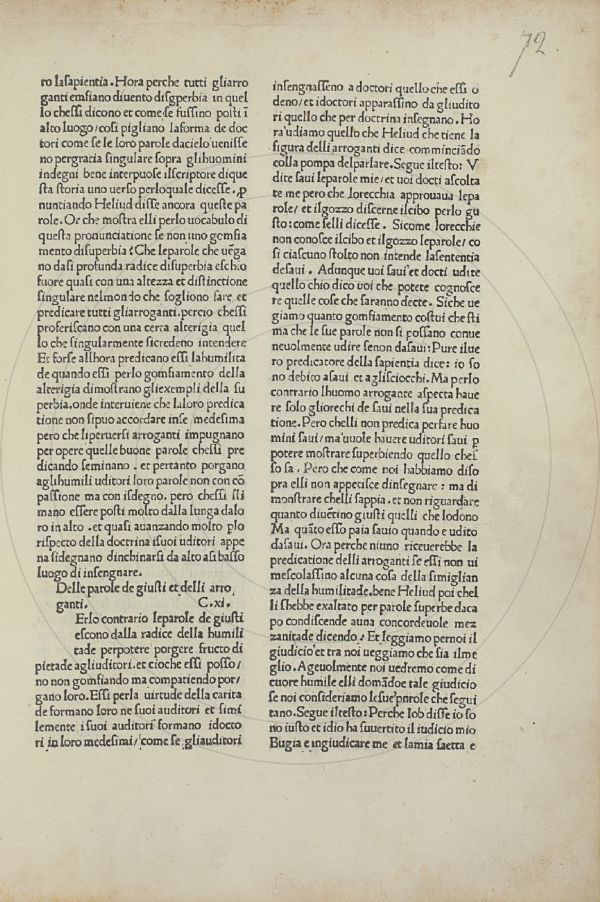 72
ro lasapientia. Hora perche tutti gliarro
ganti emfiano diuento disgperbia in quel
lo chessi dicono et come se fussino posti ī
alto luogo/ cosi pigliano laforma de doc
tori come se le loro parole dacielo uenisse
no pergratia singulare sopra glihuomini
indegni bene interpuose ilscriptore dique
sta storia uno uerso perloquale dicesse. ꝓ
nuntiando Heliud disse ancora queste pa
role. Or che mostra elli perlo uocabulo di
questa pronunciatione se non uno gonfia
mento disuperbia? Che leparole che uēga
no dasi profunda radice disuperbia eschio
fuore quasi con una altezza et distinctione
singulare nelmondo che sogliono fare. et
predicare tutti gliarroganti. percio chessi
proferiscano con una certa alterigia quel
lo che singularmente sicredeno intendere
Et forse allhora predicano essi lahumilita
de quando essi perlo gomfiamento della
alterigia dimostrano gliexempli della su
perbia. onde interuiene che laloro predica
tione non sipuo accordare inse medesima
pero che liperuersi arroganti impugnano
per opere quelle buone parole chessi pre
dicando seminano. et pertanto porgano
aglihumili uditori loro parole non con cō
passione ma con isdegno. pero chessi sti
mano essere posti molto dalla lunga dalo
ro in alto. et quasi auanzando molto plo
rispecto della doctrina isuoi uditori appe
na sidegnano dinchinarsi da alto asi basso
luogo di insengnare.
Delle parole de giusti et delli arro
ganti. C. xi.
Erlo contrario leparole de giusti
escono dalla radice della humili
tade perpotere porgere fructo di
pietade agliuditori. et cioche essi posso/
no non gomfiando ma compatiendo por/
gano loro. Essi perla uirtude della carita
de formano loro ne suoi auditori et simi
lemente i suoi auditori formano idocto
ri in loro medesimi/ come se gliauditori
insengnasseno a doctori quello che essi o
deno/ et idoctori apparassino da gliudito
ri quello che per doctrina insegnano. Ho
ra udiamo quello che Heliud che tiene la
figura delli arroganti dice comminciādo
colla pompa delparlare. Segue iltesto: V
dite saui leparole mie/ et uoi docti ascolta
te me pero che lorecchia approuaua lepa
role/ et ilgozzo discerne ilcibo perlo gu
sto: come selli dicesse. Sicome lorecchie
non conosce ilcibo et ilgozzo leparole/ co
si ciascuno stolto non intende lasententia
desaui. Adunque uoi saui et docti udite
quello chio dico uoi che potete cognosce
re quelle cose che saranno decte. Siche ue
giamo quanto gonfiamento costui che sti
ma che le sue parole non si possano conue
neuolmente udire senon dasaui: Pure ilue
ro predicatore della sapientia dice: io so
no debito asaui et aglisciocchi. Ma perlo
contrario lhuomo arrogante aspecta haue
re solo gliorechi de saui nella sua predica
tione. Pero chelli non predica perfare huo
mini saui/ ma uuole hauere uditori saui p
potere mostrare superbiendo quello chef
so sa. Pero che come noi habbiamo diso
pra elli non appetisce dinsegnare: ma di
monstrare chelli sappia. et non riguardare
quanto diuētino giusti quelli che lodono
Ma quāto esso paia sauio quando e udito
dasaui. Ora perche niuno riceuerebbe la
predicatione delli arroganti se essi non ui
mescolassino alcuna cosa della simiglian
za della humilitade. bene Heliud poi chel
li shebbe exaltato per parole superbe daca
po condiscende auna concordeuole mez
zanitade dicendo: Et leggiamo pernoi il
giudicio/ et tra noi ueggiamo che sia ilme
glio. Ageuolmente noi uedremo come di
cuore humile elli domādoe tale giudicio
se noi consideriamo lesue parole che segui
tano. Segue iltesto: Perche Iob disse io so
no iusto et idio ha suuertito il iudicio mio
Bugia e ingiudicare me et lamia saetta e